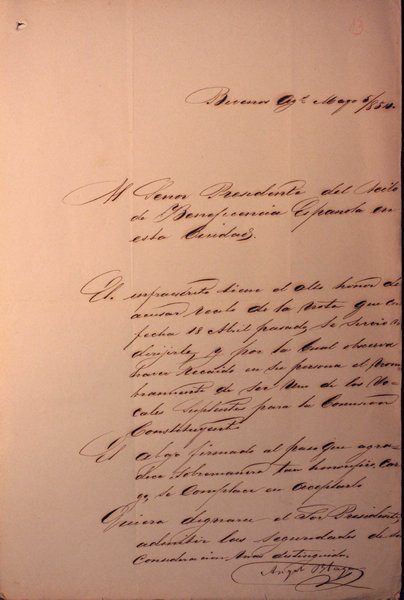 13
Buenos Ays Mayo 5/854.
Al Señor Presidente del Asilo
de Beneficencia Española en
esta Ciudad.
El infrascrito tiene el alto honor de
acusar recibo de la nota que con
fecha 18 Abril pasado, se sirvió
dirijirle, y por la cual observa
haver recaido en su persona el nom
bramiento de ser uno de los Vo
cales Suplentes para la Comision
Constituyente
El abajo firmado al paso que agra
dece sobremanera tan honorifico car
go, se complace en aceptarlo
Quiera dignarse el Sor Presidente,
admitir las seguridades de su
consideracion mas distinguida.
Angel